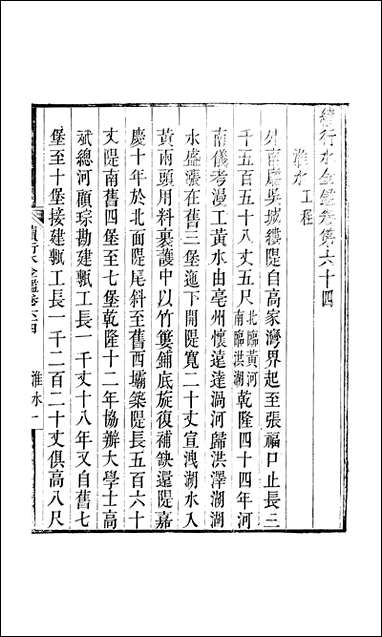 續行水金鑑卷第六十四
淮水 工程
外南廳吳城縷隄自高家灣界起至張福口止長三
千五百五十八丈五尺北臨黃河南臨洪湖乾隆四十四年河
南儀考漫工黃水由亳州懷遠達渦河歸洪澤湖湖
水盛漲在舊三堡迤下開隄寬二十丈宣洩湖水入
黃兩頭用料裹護中以竹簍鋪底旋復補缺還隄嘉
慶十年於北面隄尾斜至舊西壩築隄長五百六十
丈隄南舊四堡至七堡乾隆十二年協辦大學士高
斌總河顧琮勘建甎工長一千丈十八年又自舊七
堡至十堡接建甎工長一千二百二十丈俱高八尺
續行水金鑑卷六十四 淮水 一